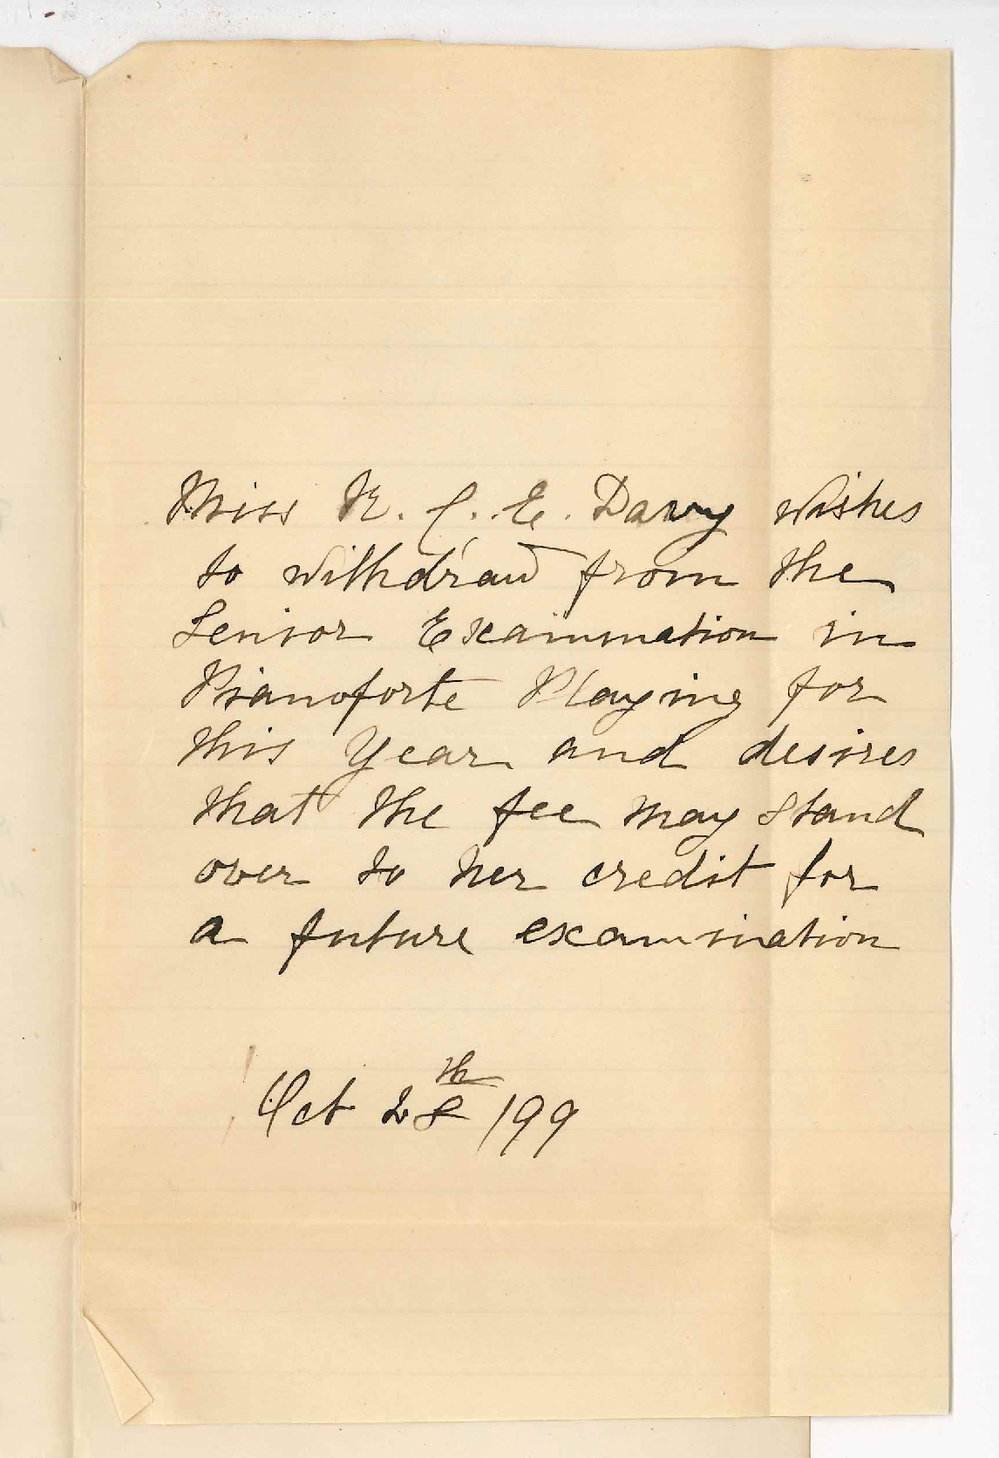 Miss K. C. E. Davy wishes
to withdraw from the
Senior Examination in
Pianoforte Playing for
this Year and desires
that the fee may stand
over to her credit for
a future examination
Oct 28th /99